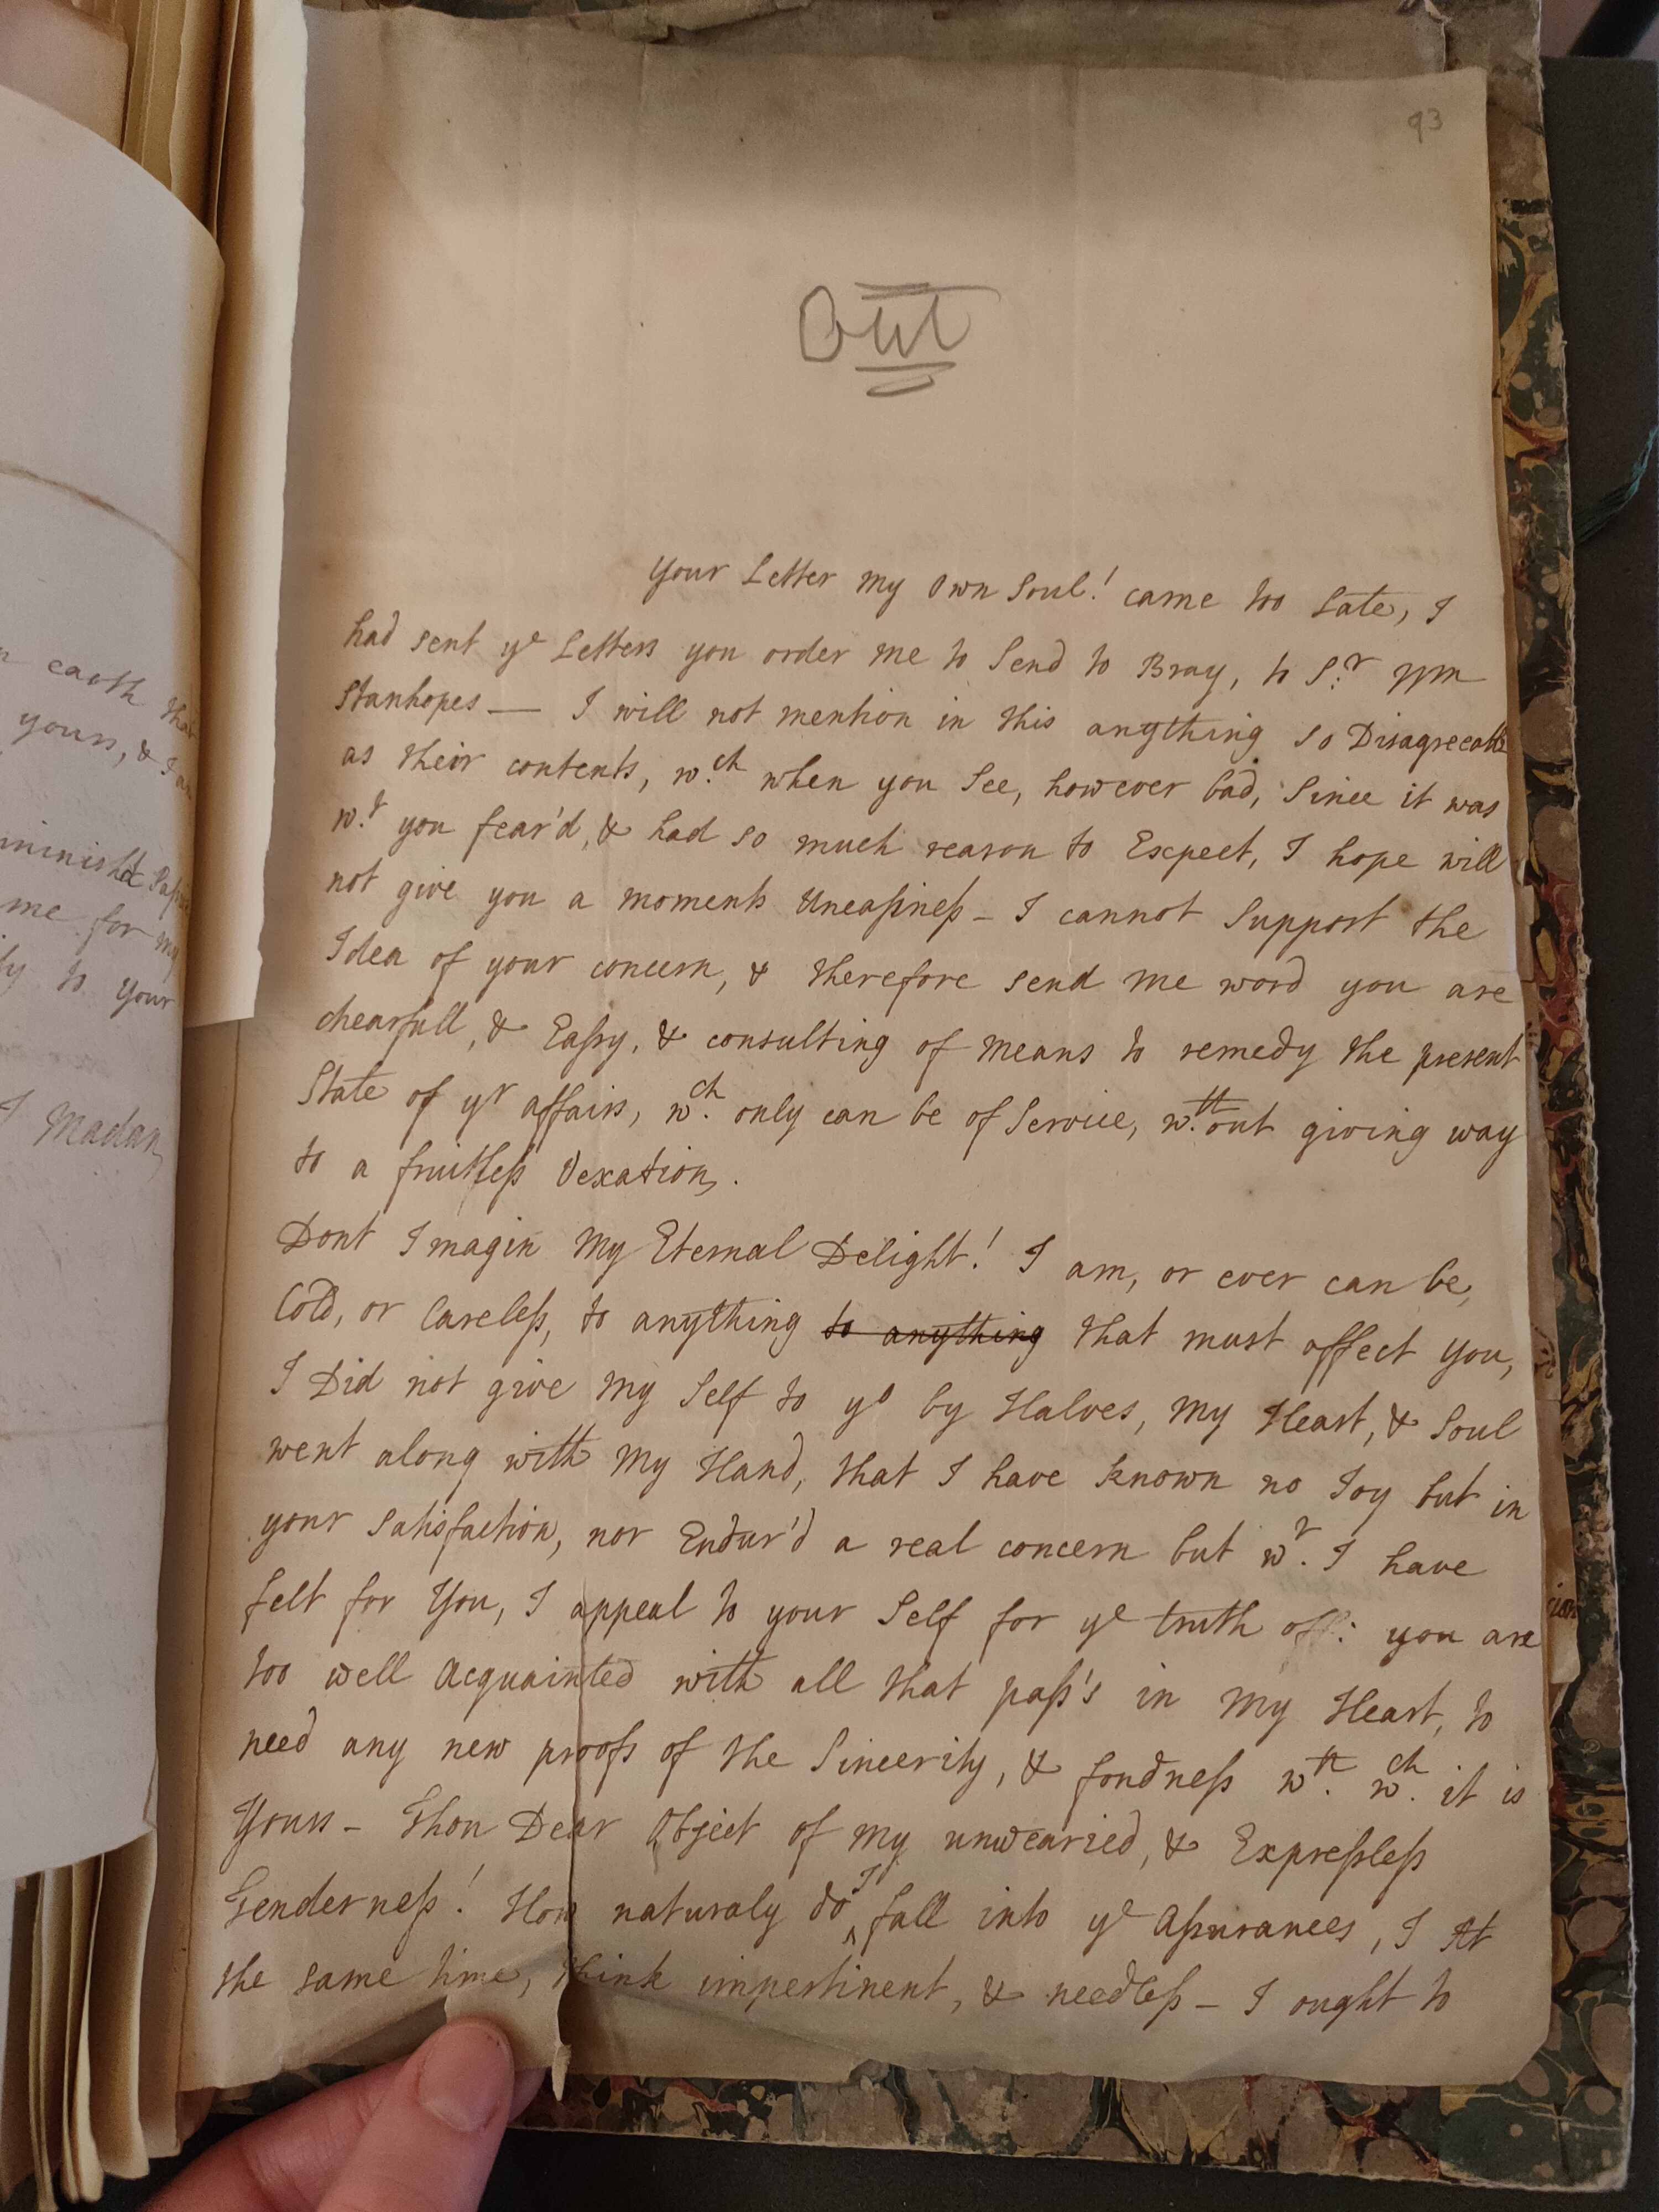 93
Out
Your Letter my own Soul! came too Late, I
had sent ye Letters you order me to Send to Bray, to Sr. Wm
Stanhopes — I will not mention in this anything so Disagreeable
as their contents, wch. when you See, however bad, Since it was
wt. you fear'd, & had so much reason to Expect, I hope will
not give you a moments Uneasiness – I cannot Support the
Idea of your concern, & therefore send me word you are
chearfull, & Eassy, & consulting of means to remedy the present
State of yr affairs, wch. only can be of Service, wth.out giving way
to a fruitless Vexation.
Dont Imagin My Eternal Delight! I am, or ever can be,
Cold, or Careless, to anything to anything that must affect You,
I Did not give my Self to yo by Halves, My Heart, & Soul
went along with My Hand, that I have known no Joy but in
your Satisfaction, nor Endur'd a real concern but wt. I have
felt for You, I appeal to your Self for ye truth off: you are
too well Acquainted with all that pass's in My Heart, to
need any new proofs of the Sincerity, & fondness wth. wch. it is
Yours – Thou Dear Object of my unwearied, & Expressless
Tenderness! How naturaly do I fall into ye Assurances, I At
the same time, think impertinent, & needless – I ought to
earth that
yours, &
me for my
to your
I Madan